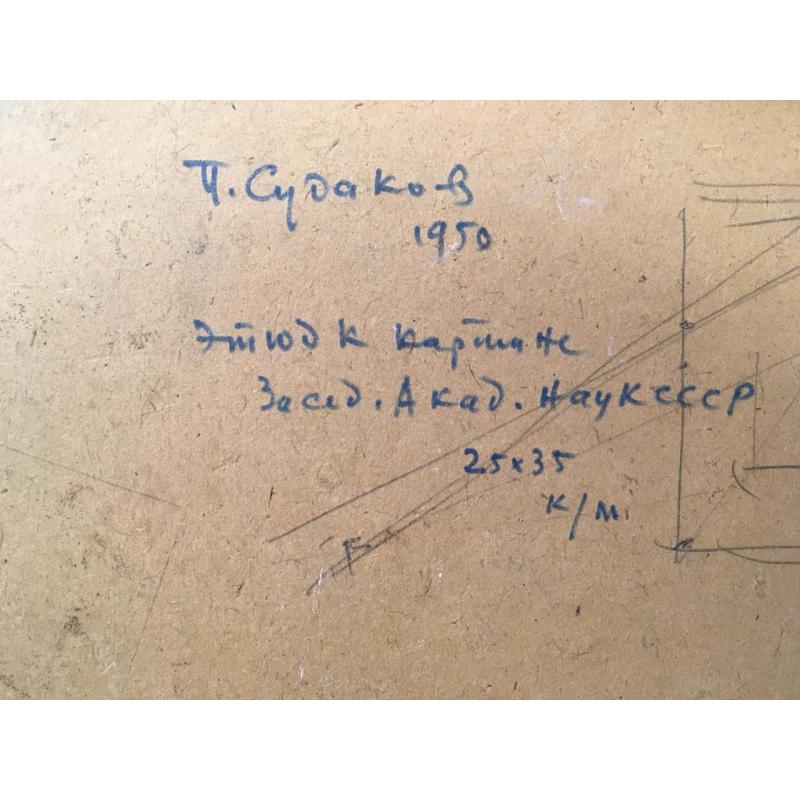 П. Судаков
1950
Этюд к картине
Засед. Акад. Наук СССР
25х35
к/м.